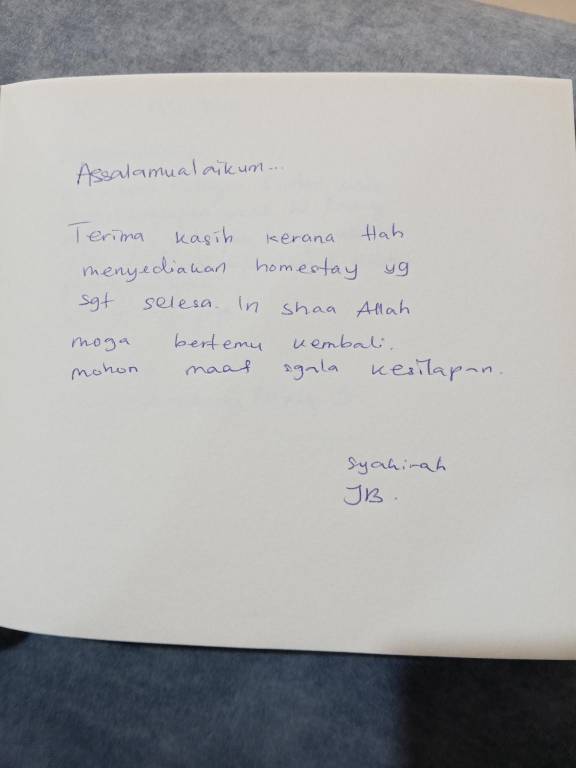 Assalamualaikum...
Terima kasih kerana tlah
menyediakan homestay yg
sgt selesa. In shaa Allah
moga bertemu kembali.
mohon maaf sgala kesilapan.
Syahirah
JB.